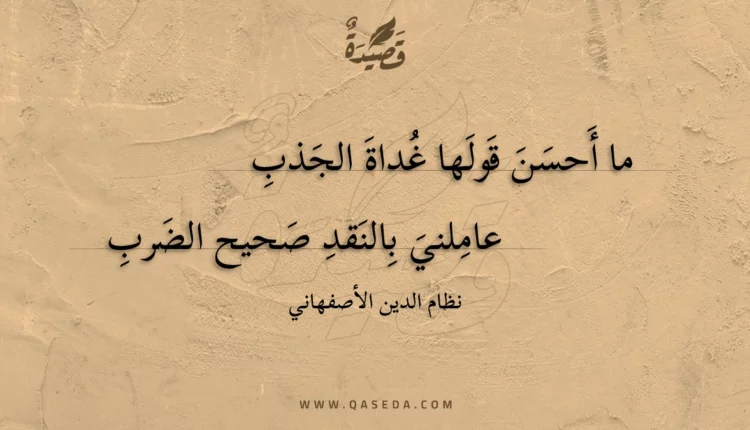 قَصِيدَةٌ
ما أَحسَنَ قَولَها غُداةَ الجَذبِ
عامِلنيَ بِالنَقدِ صَحيح الضَربِ
نظام الدين الأصفهاني
WWW.QASEDA.COM